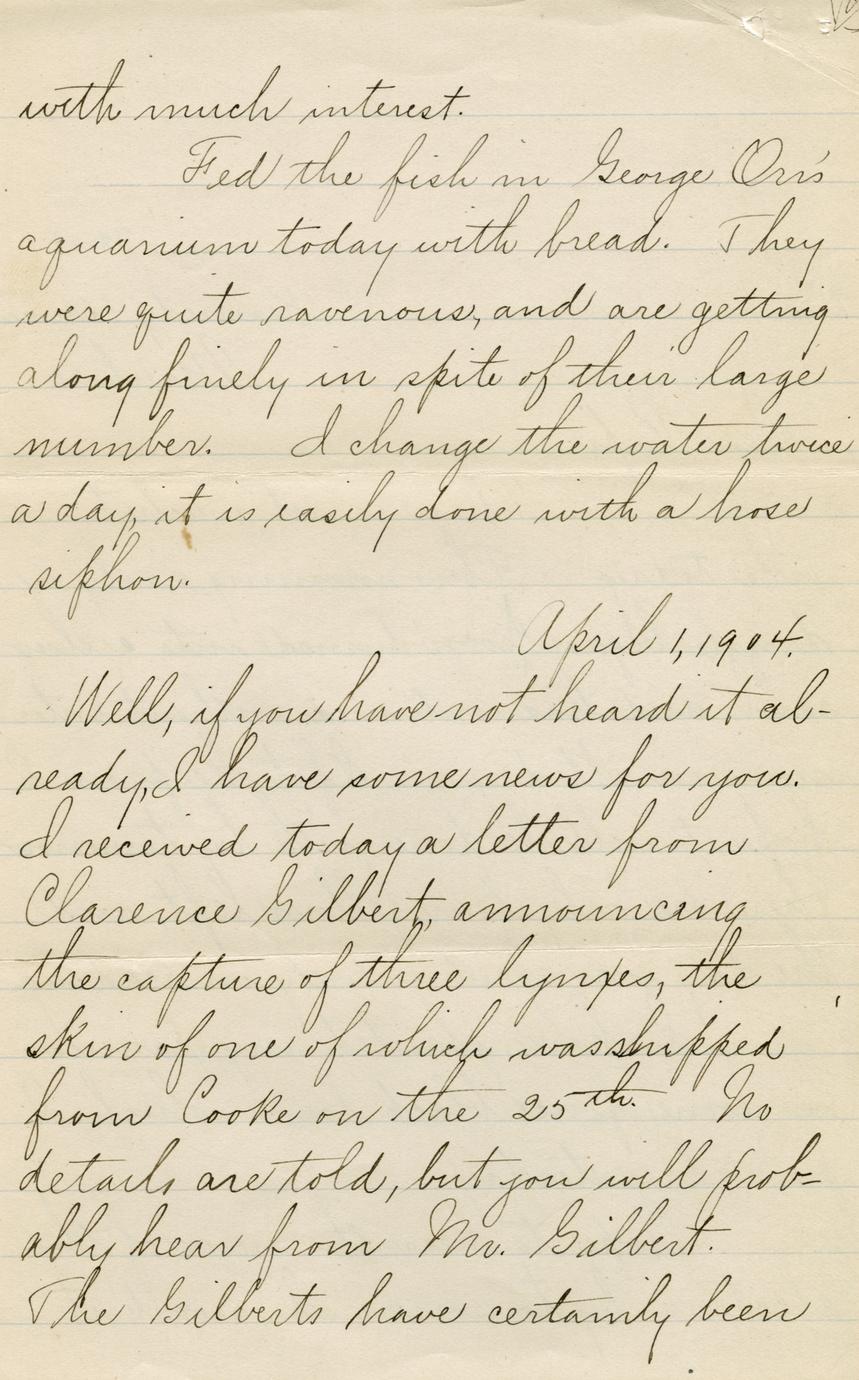 with much interest.
Fed the fish in George Orr's
aquarium today with bread. They
were quite ravenous, and are getting
along finely in spite of their large
number. I change the water twice
a day, it is easily done with a hose
siphon.
April 1, 1904.
Well, if you have not heard it al-
ready, I have some news for you.
I received today a letter from
Clarence Gilbert, announcing
the capture of three lynxes, the
skin of one of which was shipped
from Cooke on the 25th. No
details are told, but you will prob-
ably hear from Mr. Gilbert.
The Gilberts have certainly been